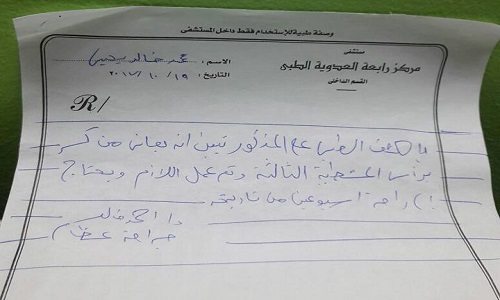 وصفة طبية للإستخدام فقط داخل المستشفى
مستشفى
مركز رابعة العدوية الطبى
القسم الداخلى
الاسم : محمد خالد يحيى
التاريخ : ٢٠١٧/١٠/١٩
R/
بالكشف الطبى على المذكور تبين انه يعانى من كسر
برأس المشطية الثالثة وتم عمل اللازم ويحتاج
إلى راحة اسبوعين من تاريخه
د/ احمد خالد
جراحة عظام